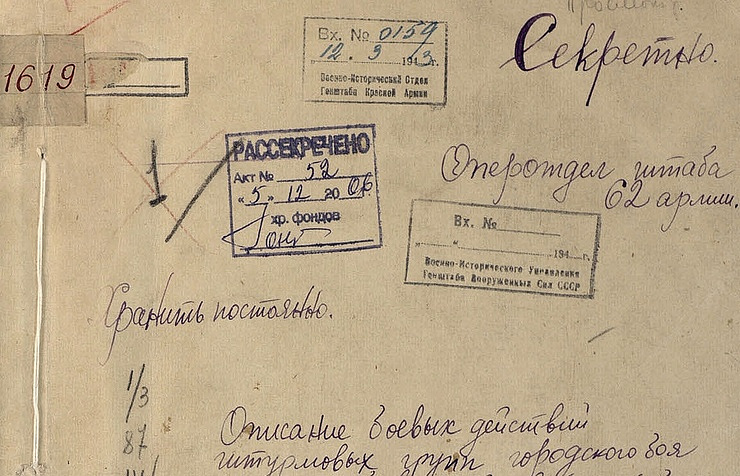 Вх. № 0159
12. 3 1943г.
Военно-Исторический Отдел
Генштаба Красной Армии
Секретно.
1619
1
РАССЕКРЕЧЕНО
Акт № 52
„5„ 12 2006г.
хр. фондов
Оперотдел штаба
62 армии.
Вх. №
„ “ 194 г.
Военно-Исторического Управления
Генштаба Вооруженных Сил СССР
Хранить постоянно.
1/3
87
Описание боевых действий
штурмовых групп городского боя